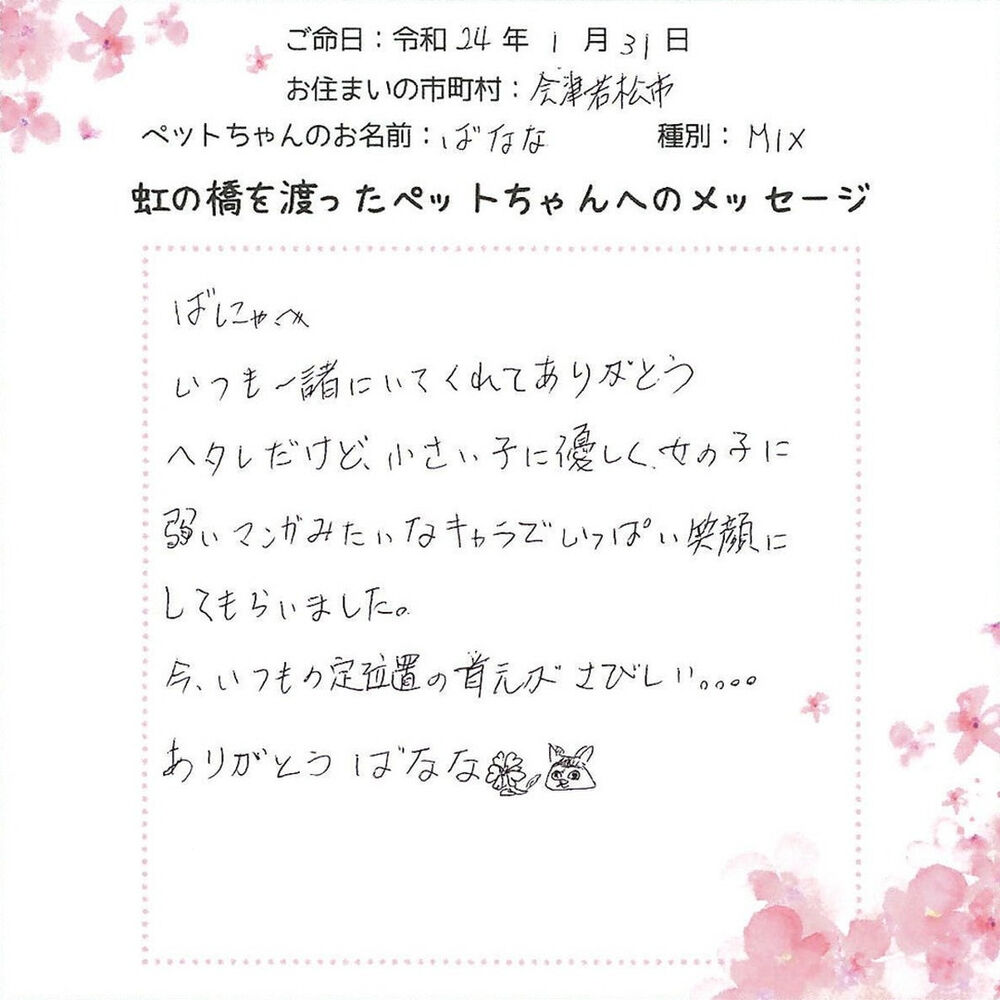 ご命日：令和24年1月31日
お住まいの市町村：会津若松市
ペットちゃんのお名前：ばなな　種別：MIX
虹の橋を渡ったペットちゃんへのメッセージ
ばにゃへ
いつも一諸にいてくれてありがとう
ヘタレだけど、小さい子に優しく、女の子に
弱いマンガみたいなキャラでいっぱい笑顔に
してもらいました。
今、いつもの定位置の首元がさびしい。。。。
ありがとう ばなな